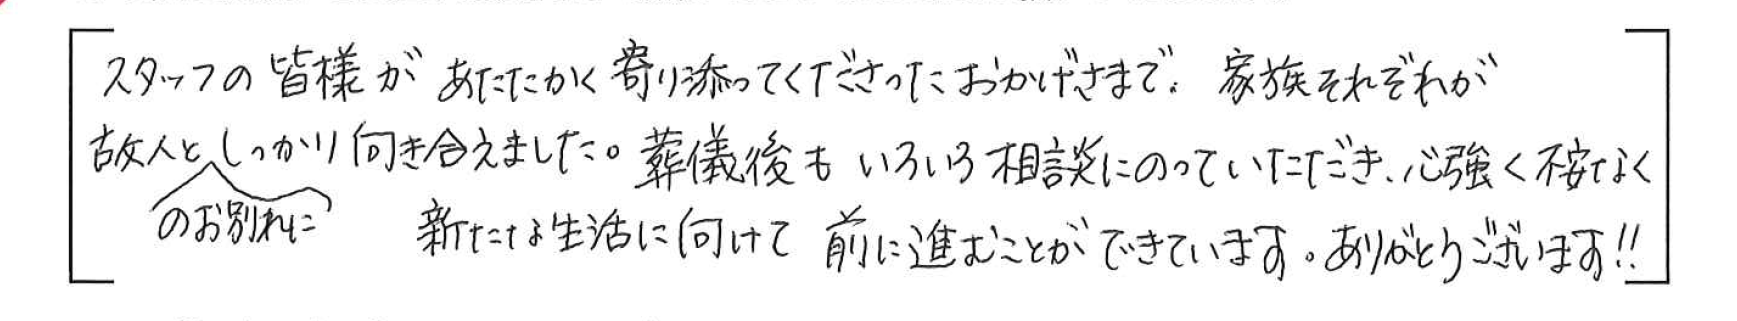 スタッフの皆様があたたかく寄り添ってくださったおかげさまで、家族それぞれが
故人としっかり向き合えました。葬儀後もいろいろ相談にのっていただき、心強く不安なく
のお別れに 新たな生活に向けて 前に進むことができています。ありがとうございます!!